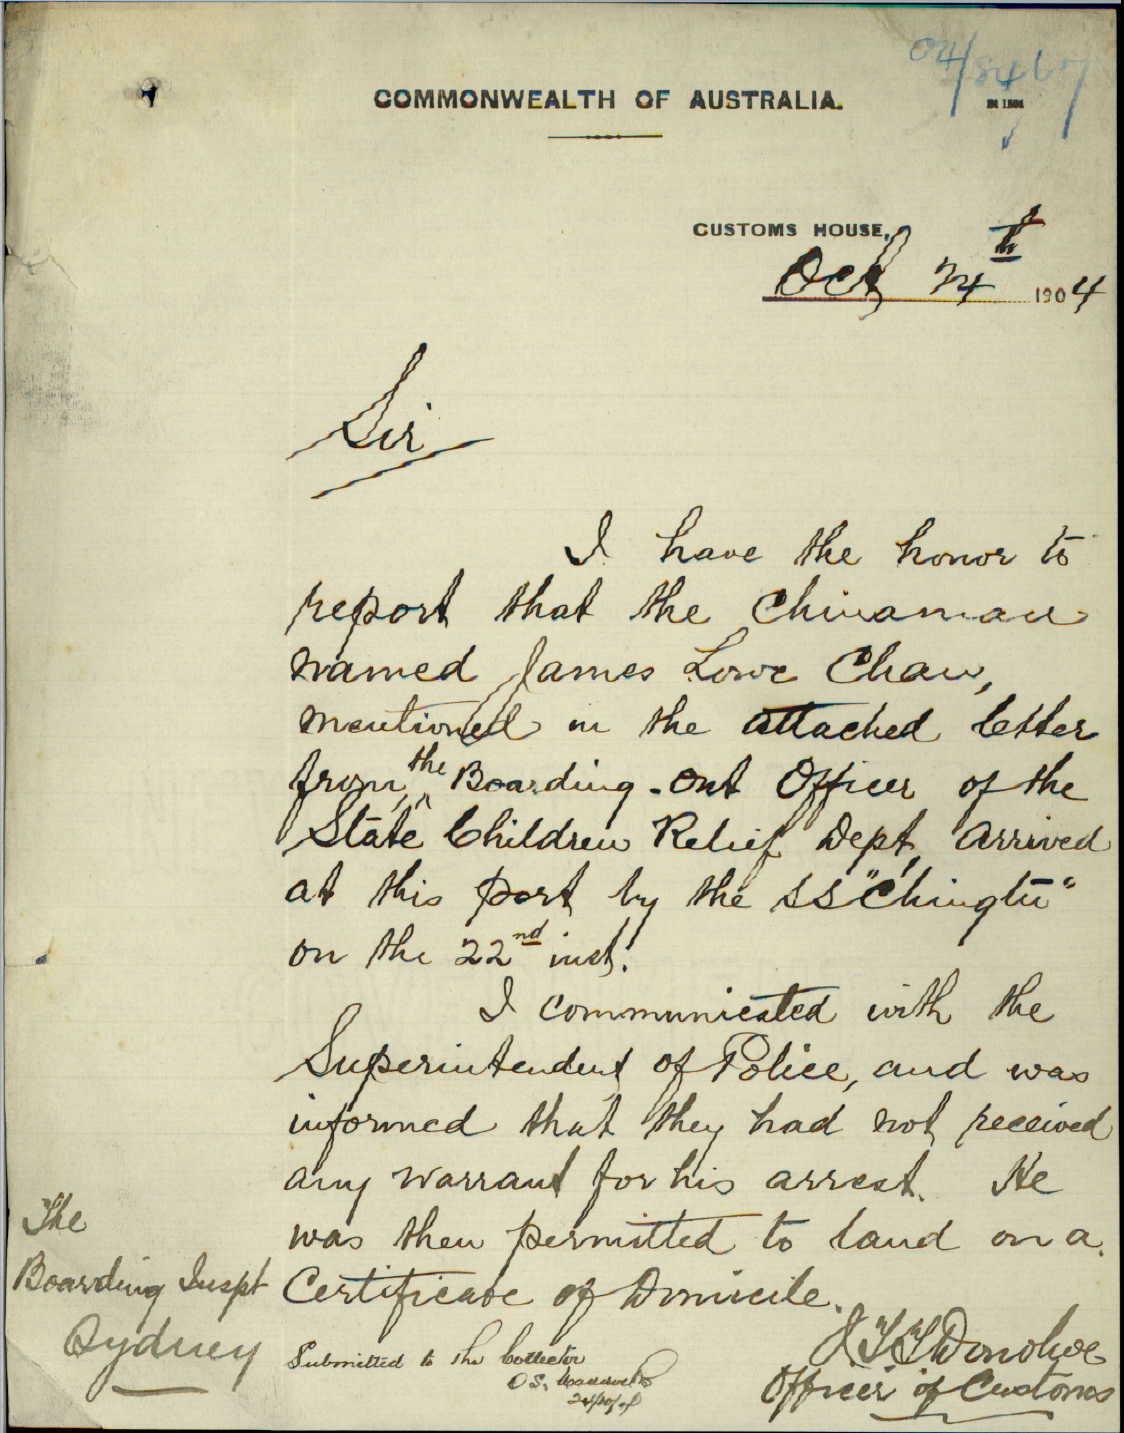 04/84607
COMMONWEALTH OF AUSTRALIA.
CUSTOMS HOUSE,
Oct 24th 1904
Sir
I have the honor to
report that the Chinaman
named James Lowe Chan,
mentioned in the attached letter
from, the Boarding-Out Officer of the
State Children Relief Dept, arrived
at this port by the SS "Chingtu"
on the 22nd inst.
I communicated with the
Superintendent of Police, and was
informed that they had not received
any warrant for his arrest. He
was then permitted to land on a
Certificate of Domicile.
J T T Donohoe
Officer of Customs
The
Boarding Inspt
Sydney
Submitted to the Collector
24/10/04